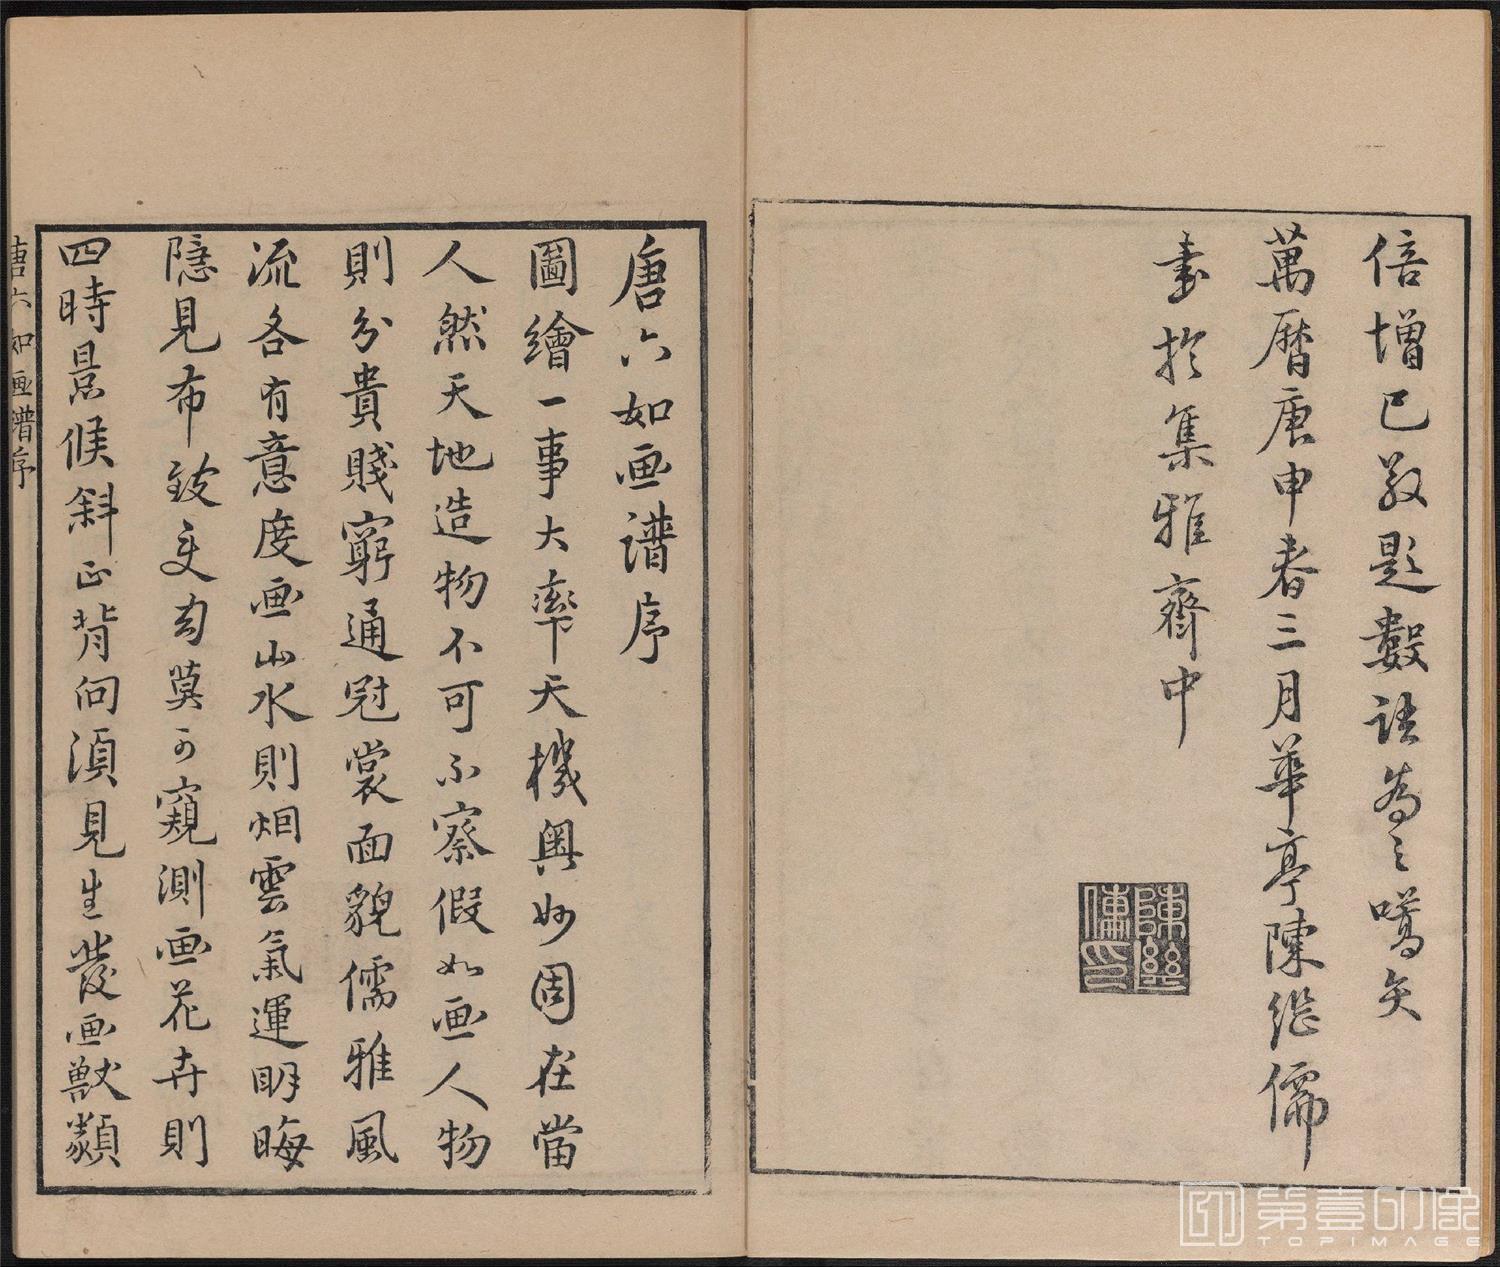 倍增已敬題數語為之嚆矢
萬曆庚申春三月華亭陳继儒
書於集雅齋中
陳繼儒印
唐六如画譜序
圖繪一事大率天機奥妙固在當
人然天地造物不可不察假如画人物
則分貴賤窮通冠裳面貌儒雅風
流各有意度画山水則烟雲氣運明晦
隱見布致变幻莫可窺測画花卉則
四時景候斜正背向須見生發画獸類
唐六如画譜序
第壹印像
TOPIMAGE